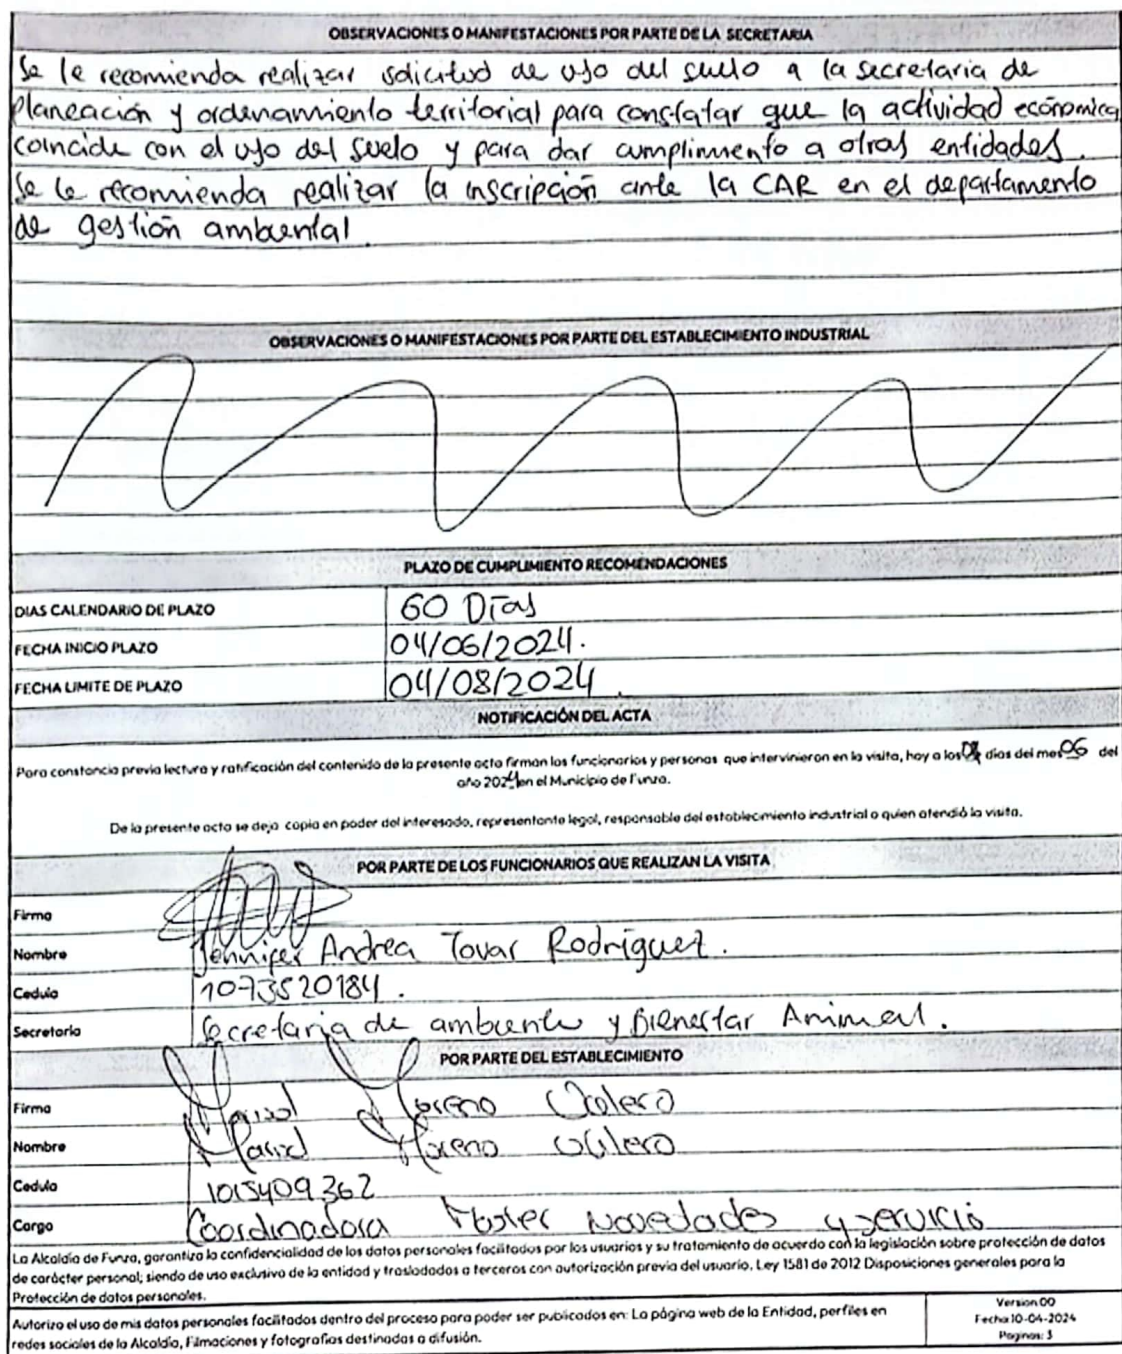 OBSERVACIONES O MANIFESTACIONES POR PARTE DE LA SECRETARIA
Se le recomienda realizar solicitud de uso del suelo a la secretaria de
Planeación y ordenamiento territorial para constatar que la actividad económica
coincide con el uso del suelo y para dar cumplimiento a otras entidades.
Se le recomienda realizar la inscripción ante la CAR en el departamento
de gestión ambiental.
OBSERVACIONES O MANIFESTACIONES POR PARTE DEL ESTABLECIMIENTO INDUSTRIAL
PLAZO DE CUMPLIMIENTO RECOMENDACIONES
DIAS CALENDARIO DE PLAZO 60 Días
FECHA INICIO PLAZO 04/06/2024.
FECHA LIMITE DE PLAZO 04/08/2024.
NOTIFICACIÓN DEL ACTA
Para constancia previa lectura y ratificación del contenido de la presente acta firman los funcionarios y personas que intervinieron en la visita, hoy a los 04 dias del mes 06 del
año 2024 en el Municipio de Funza.
De la presente acta se deja copia en poder del interesado, representante legal, responsable del establecimiento industrial o quien atendió la visita.
POR PARTE DE LOS FUNCIONARIOS QUE REALIZAN LA VISITA
Firma
Nombre Jennifer Andrea Tovar Rodríguez.
Cedula 1073520184.
Secretaria Secretaria de ambiente y Bienestar Animal.
POR PARTE DEL ESTABLECIMIENTO
Firma Marisol Moreno
Nombre Marisol Moreno
Cedula 1015409362
Cargo Coordinadora Master Novedades y servicio
La Alcaldía de Funza, garantiza la confidencialidad de los datos personales facilitados por los usuarios y su tratamiento de acuerdo con la legislación sobre protección de datos
de carácter personal; siendo de uso exclusivo de la entidad y trasladados a terceros con autorización previa del usuario. Ley 1581 de 2012 Disposiciones generales para la
Protección de datos personales.
Autorizo el uso de mis datos personales facilitados dentro del proceso para poder ser publicados en: La página web de la Entidad, perfiles en
redes sociales de la Alcaldía, Filmaciones y fotografías destinadas a difusión.
Version 00
Fecha 10-04-2024
Paginas: 3